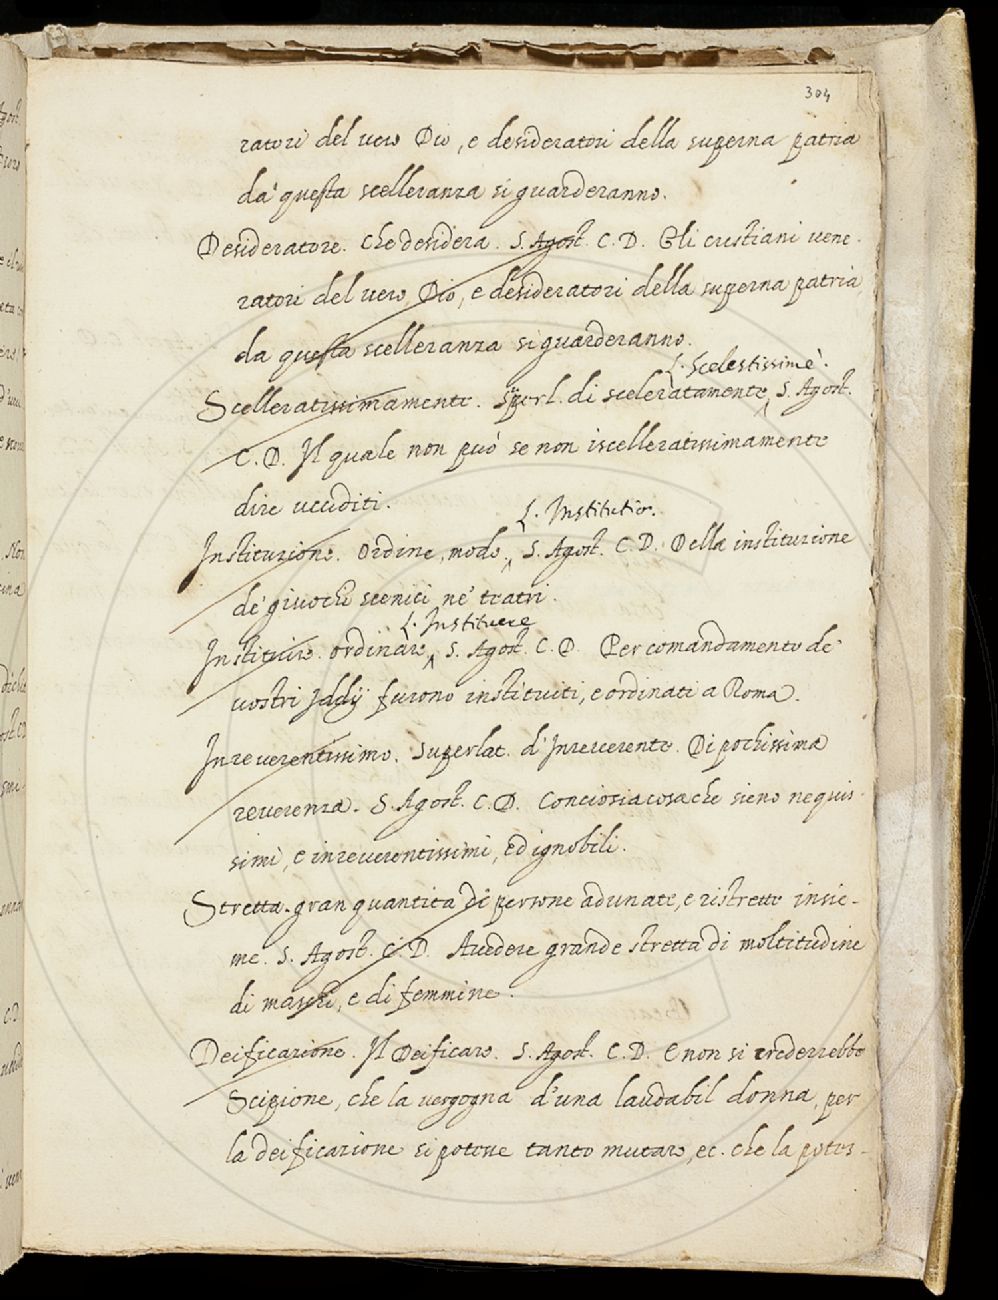 304
ratori del vero Dio, e desideratori della superna patria
da questa scelleranza si guarderanno.
Desideratore. Che desidera. S. Agost. C. D. Gli cristiani vene-
ratori del vero Dio, e desideratori della superna patria,
da questa scelleranza si guarderanno.
L. Scelestissimè.
Scelleratissimamente. Sŭperl. di sceleratamente, S. Agost.
C. D. Il quale non può se non iscelleratissimamente
dire uccuditi.
L. Institutio.
Instituzione. Ordine, modo, S. Agost. C. D. Della instituzione
de' givochi scenici ne' teatri.
L. Instituere
Instituire. Ordinare, S. Agost. C. D. Per comandamento de'
vostri Iddij furono instituiti, e ordinati a Roma.
Inreverentissimo. Superlat. d'Inreverente. Di pochissima
reverenza. S. Agost. C. D. Conciosiacosache sieno nequis-
simi, e inreverentissimi, ed ignobili.
Stretta. gran quantità di persone adunate, e ristrette insie-
me. S. Agost. C. D. Avedere grande stretta di moltitudine
di maschi, e di femmine.
Deificazione. Il Deificare. S. Agost. C. D. E non si crederrebbe
Scipione, che la vergogna d'una laudabil donna, per
la deificazione si potesse tanto mutare, ec. che la potes-